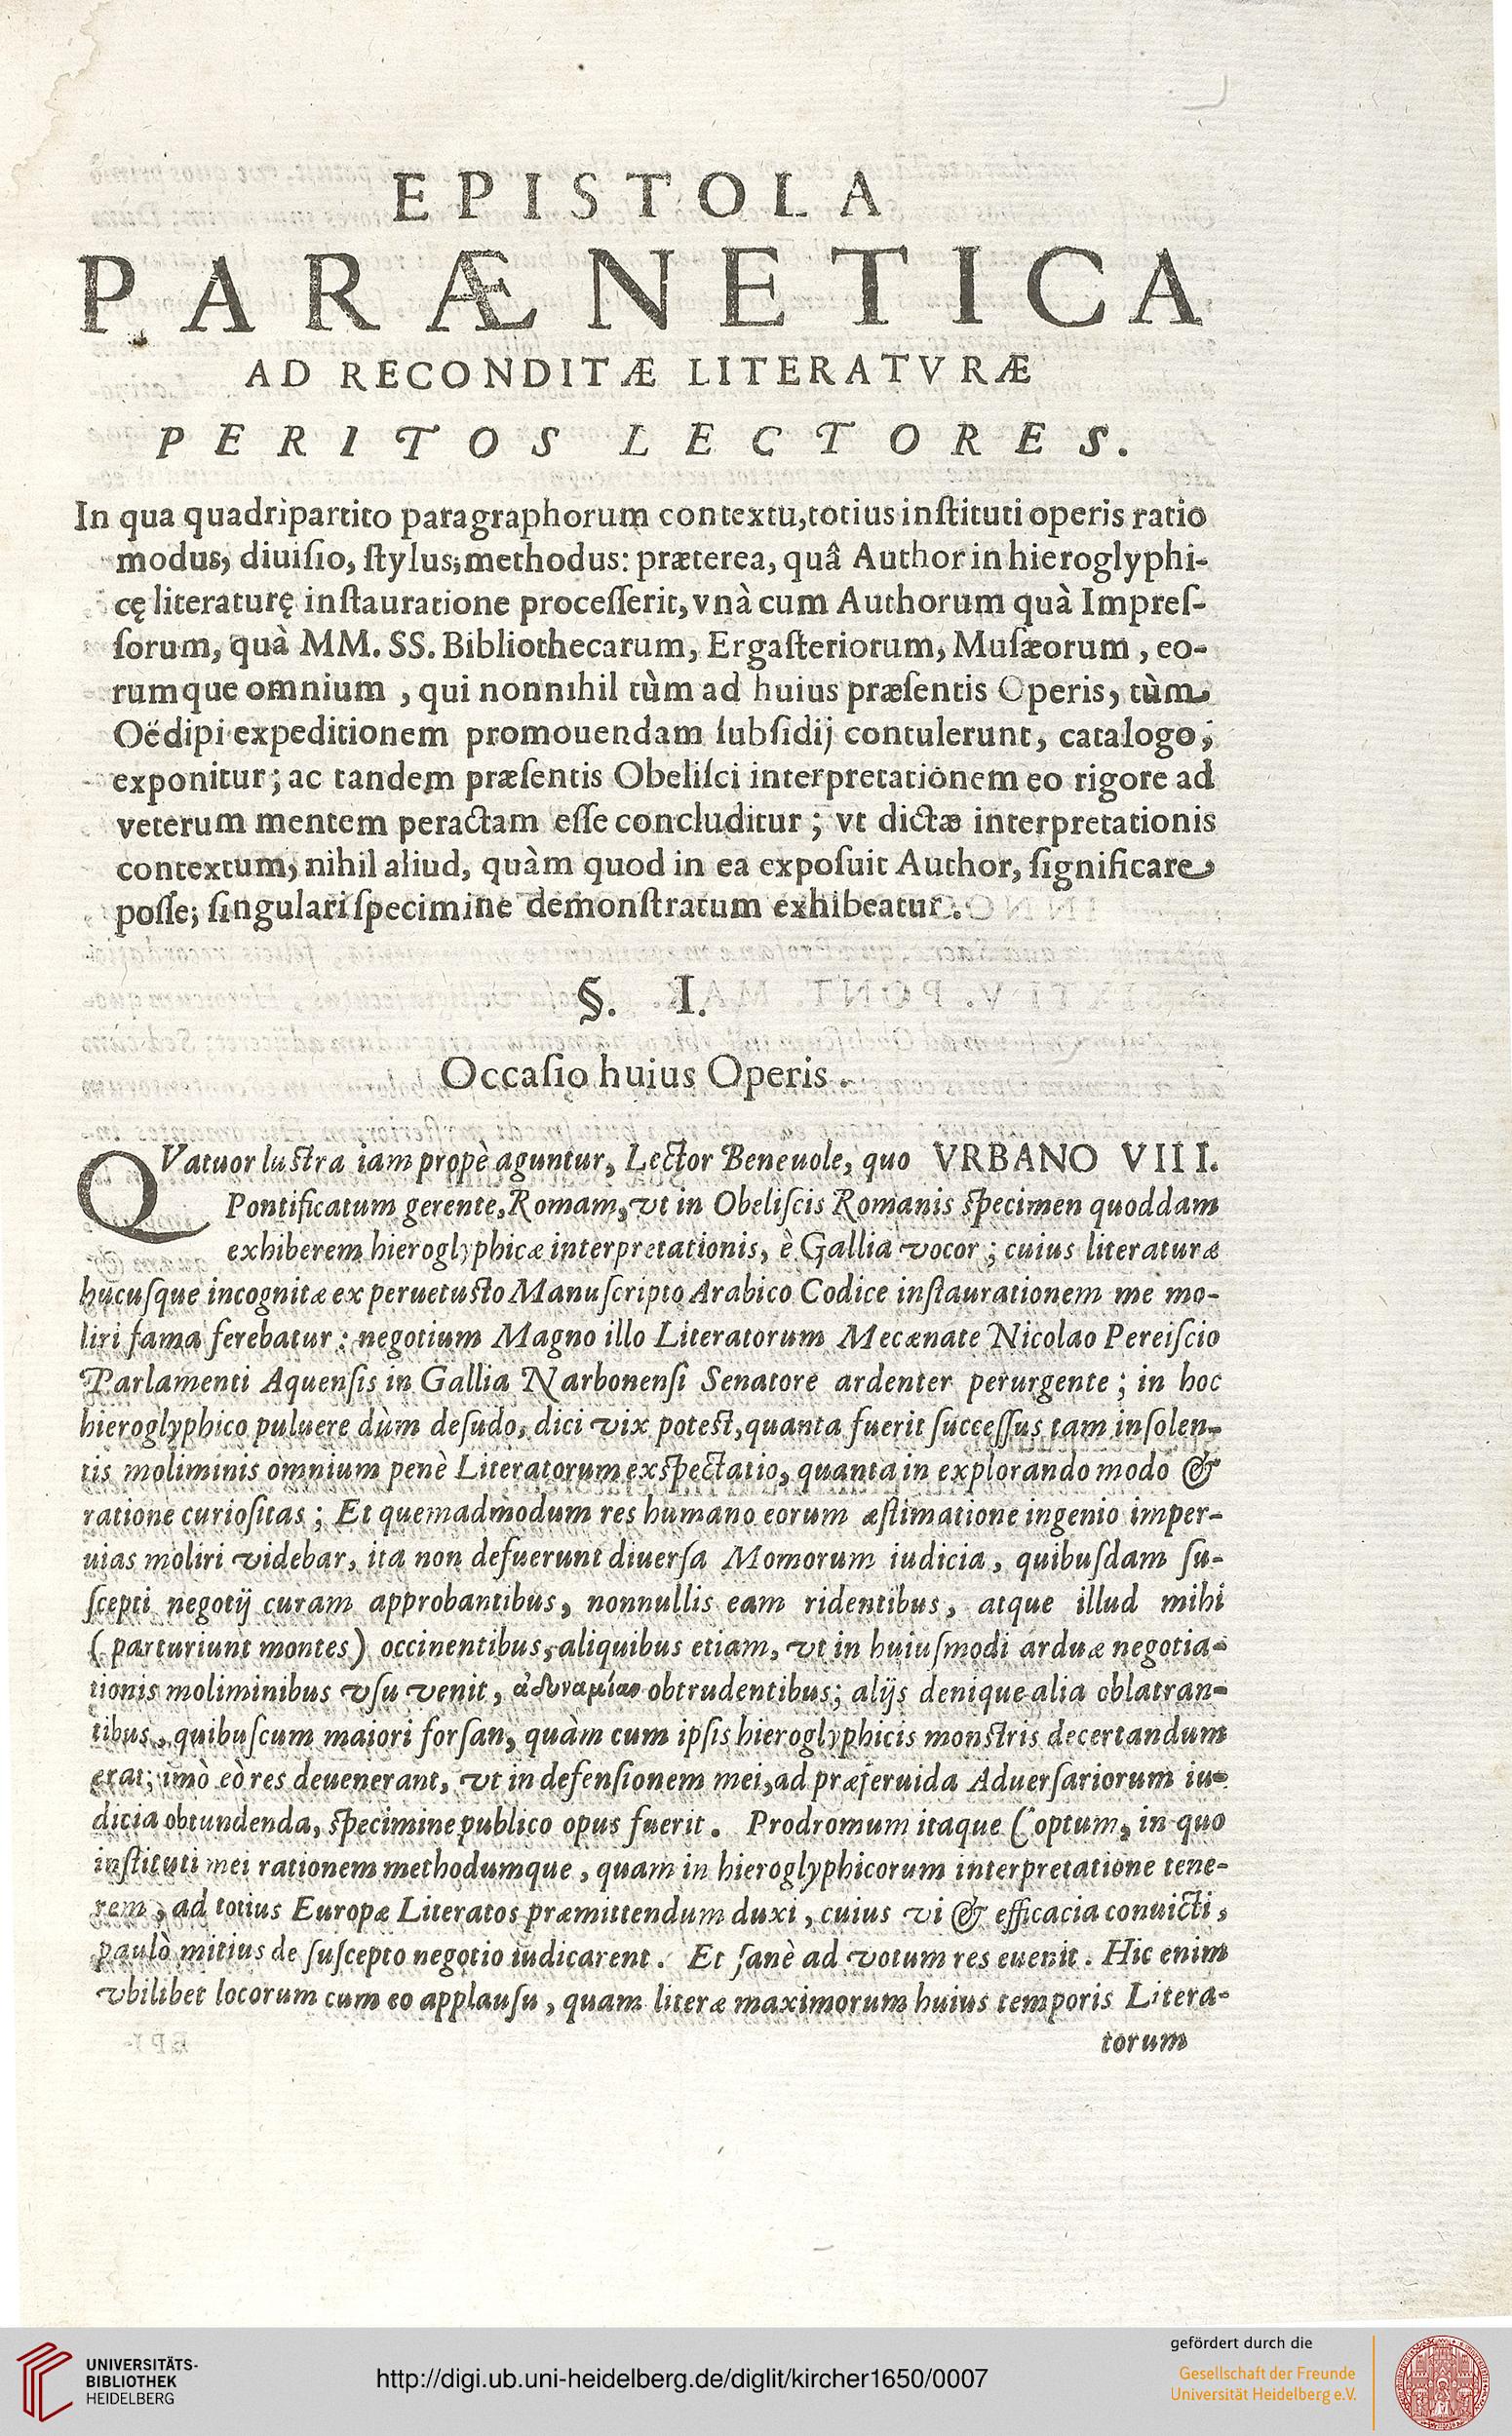 EPISTOLA
PARÆNETICA
AD RECONDITÆ LITERATVRÆ
PERITOS LECTORES.
In qua quadripartito paragraphorum contextu, totius inſtituti operis ratio
modus, diuiſio, ſtylus; methodus: præterea, quâ Author in hieroglyphi-
cę literaturę inſtauratione proceſſerit, vnà cum Authorum quà Impreſ-
ſorum, quà MM. SS. Bibliothecarum, Ergaſteriorum, Muſæorum, eo-
rumque omnium, qui nonnihil tùm ad huius præſentis Operis, tùm
Oëdipi expeditionem promouendam ſubſidij contulerunt, catalogo,
exponitur; ac tandem præſentis Obeliſci interpretationem eo rigore ad
veterum mentem peractam eſſe concluditur; vt dictæ interpretationis
contextum, nihil aliud, quàm quod in ea expoſuit Author, ſignificare
poſſe; ſingulari ſpecimine demonſtratum exhibeatur.
§. I.
Occaſio huius Operis.
QVatuor luſtra iam propè aguntur, Lector Beneuole, quo VRBANO VIII.
Pontificatum gerente, Romam, vt in Obeliſcis Romanis ſpecimen quoddam
exhiberem hieroglyphicæ interpretationis, è Gallia vocor; cuius literaturæ
hucuſque incognitæ ex peruetuſto Manuſcripto Arabico Codice inſtaurationem me mo-
liri fama ferebatur: negotium Magno illo Literatorum Mecænate Nicolao Pereiſcio
Parlamenti Aquenſis in Gallia Narbonenſi Senatore ardenter perurgente; in hoc
hieroglyphico puluere dùm deſudo, dici vix poteſt, quanta fuerit ſucceſſus tam inſolen-
tis moliminis omnium penè Literatorum exſpectatio, quanta in explorando modo &
ratione curioſitas; Et quemadmodum res humano eorum æſtimatione ingenio imper-
uias moliri videbar, ita non defuerunt diuerſa Momorum iudicia, quibuſdam ſu-
ſcepti negotij curam approbantibus, nonnullis eam ridentibus, atque illud mihi
(parturiunt montes) occinentibus, aliquibus etiam, vt in huiuſmodi arduæ negotia-
tionis moliminibus vſu venit, ἀδυναμίαν obtrudentibus; alijs denique alia oblatran-
tibus, quibuſcum maiori forſan, quàm cum ipſis hieroglyphicis monſtris decertandum
erat; imò eò res deuenerant, vt in defenſionem mei, ad præferuida Aduerſariorum iu-
dicia obtundenda, ſpecimine publico opus fuerit. Prodromum itaque Coptum, in quo
inſtituti mei rationem methodumque, quam in hieroglyphicorum interpretatione tene-
rem, ad totius Europæ Literatos præmittendum duxi, cuius vi & efficacia conuicti,
paulò mitius de ſuſcepto negotio iudicarent. Et ſanè ad votum res euenit. Hic enim
vbilibet locorum cum eo applauſu, quam literæ maximorum huius temporis Litera-
torum
UNIVERSITÄTS-
BIBLIOTHEK
HEIDELBERG
http://digi.ub.uni-heidelberg.de/diglit/kircher1650/0007
gefördert durch die
Gesellschaft der Freunde
Universität Heidelberg e.V.